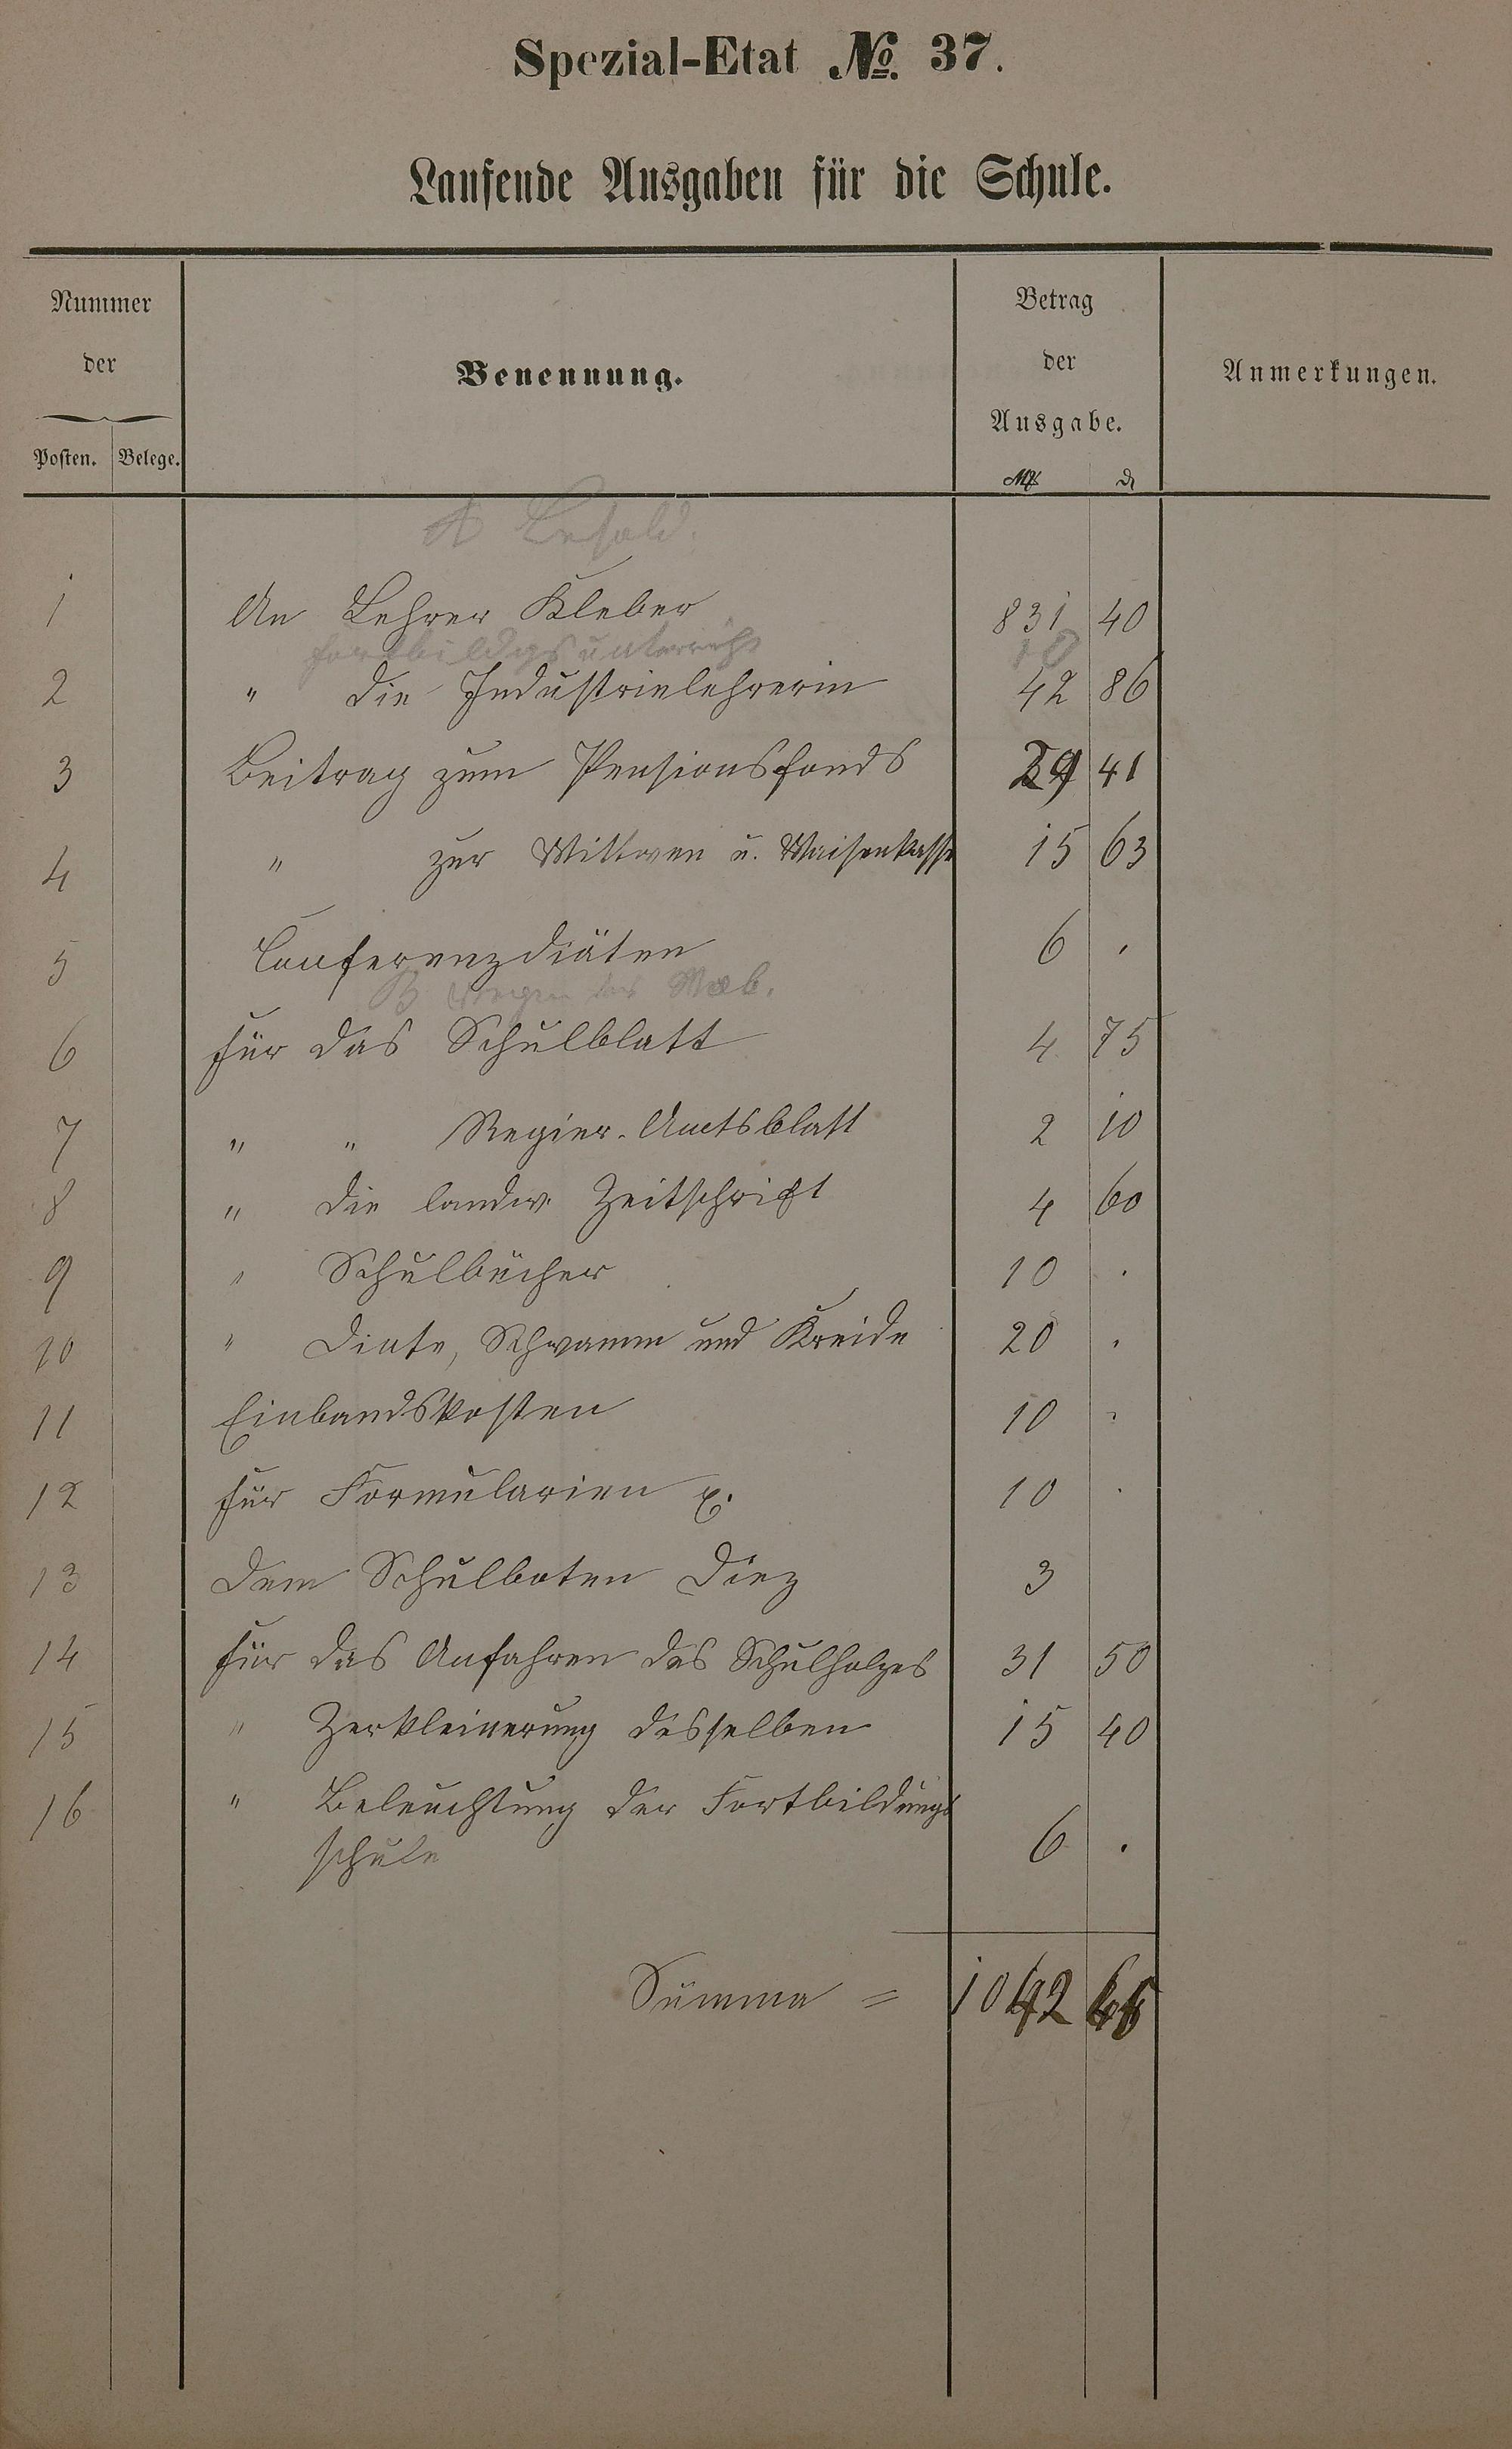 Spezial-Etat No. 37.
Laufende Ausgaben für die Schule.
Nummer der
Posten. Belege.
Benennung.
Betrag der Ausgabe.
M ₰
Anmerkungen.
A Besold.
1 An Lehrer Kleber 831 40
Fortbildgsunterricht 10
2 " die Industrielehrerin 42 86
3 Beitrag zum Pensionsfonds 29 41
4 " zur Wittwen u. Waisenkasse 15 63
5 Conferenzdiäten 6 .
B
6 für das Schulblatt 4 75
7 " " Regier. Amtsblatt 2 10
8 " die landw. Zeitschrift 4 60
9 " Schulbücher 10 .
10 " Dinte, Schwamm und Kreide 20 .
11 Einbandskosten 10 .
12 für Formularien 10 .
13 Dem Schulboten Diez 3
14 für das Anfahren des Schulholzes 31 50
15 " Zerkleinerung desselben 15 40
16 " Beleuchtung der Fortbildungs
schule 6 .
Summa = 1042